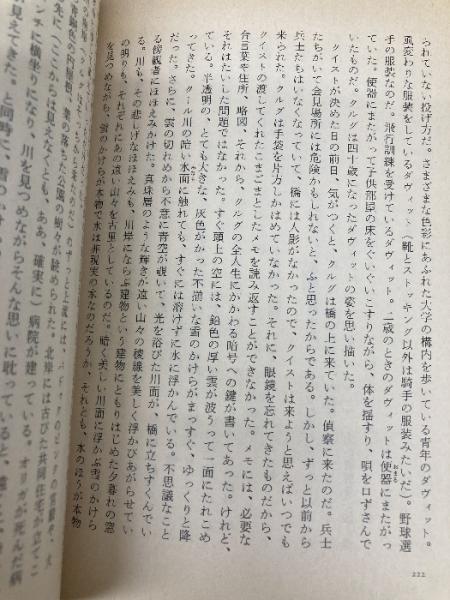 られていない投げ方だ。さまざまな色彩にあふれた大学の構内を歩いている青年のダヴィット。
風変わりな服装をしているダヴィット（靴とストッキング以外は騎手の服装みたいだ）。野球選
手の服装なのだ。飛行訓練を受けているダヴィット。二歳のときのダヴィットは便器にまたがっ
ていた。便器にまたがって子供部屋の床をぐいぐいこすりながら、体を揺すり、唄を口ずさんで
いたものだ。クルグは四十歳になったダヴィットの姿を思い描いた。
クイストが決めた日の前日、気がつくと、クルグは橋の上に来ていた。偵察に来たのだ。兵士
たちがいて会見場所には危険かもしれないと、ふと思ったからである。しかし、ずっと以前から
兵士たちはいなくなっていて、橋には人影がなかったので、クイストは来ようと思えばいつでも
来られた。クルグは手袋を片方しかはめていなかった。それに、眼鏡を忘れてきたものだから、
クイストの渡してくれたこまごまとしたメモを読み返すことができなかった。メモには、必要な
合言葉や住所、略図、それから、クルグの全人生にかかわる暗号への鍵が書いてあった。けれど、
それはたいした問題ではなかった。すぐ頭上の空には、鉛色の厚い雲が波うって一面にたれこめ
ている。半透明の、とても大きな、灰色がかった不揃いな雪のかけらがまっすぐ、ゆっくりと降
ってきた。クール川の暗い水面に触れても、すぐには溶けずに水に浮かんでいる。不思議なこと
だった。さらに、雲の切れめから不意に青空が覗いて、光を浴びた川面が、橋に立ちすくんでい
る傍観者にほほえみかけた。真珠層のような輝きが遠い山々の稜線を美しく浮かびあがらせてい
る。川も、その悲しげなほほえみも、川岸にならぶ建物という建物にともりはじめた夕暮れの窓
の明りも、それぞれにあの遠い山々を古里としているのだ。暗く美しい川面に浮かぶ雪のかけら
を見つめながら、雪のかけらが本物で水は非現実の水なのだろうか、それとも、水のほうが本物
222